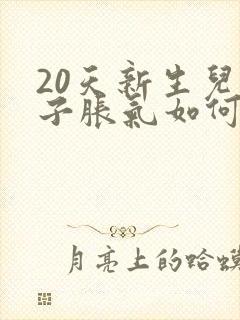 20天新生兒
子脹氣如何
月亮上的蛤蟆